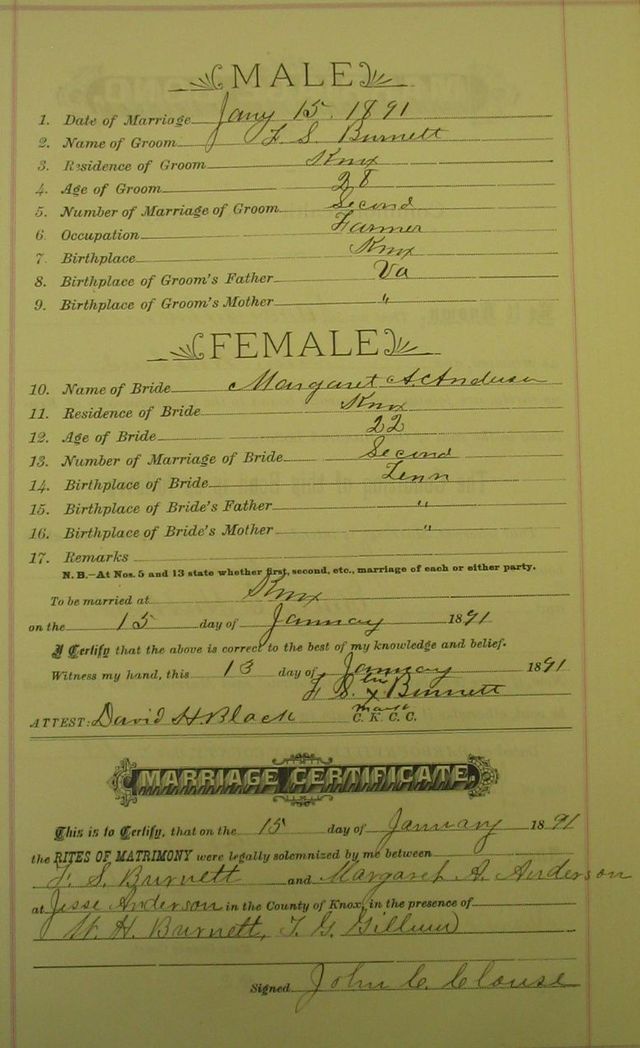 MALE
1. Date of Marriage Jany 15. 1891
2. Name of Groom F. S. Burnett
3. Residence of Groom Knox
4. Age of Groom 28
5. Number of Marriage of Groom Second
6. Occupation Farmer
7. Birthplace Knox
8. Birthplace of Groom's Father Va
9. Birthplace of Groom's Mother "
FEMALE
10. Name of Bride Margaret A. Anderson
11. Residence of Bride Knox
12. Age of Bride 22
13. Number of Marriage of Bride Second
14. Birthplace of Bride Tenn
15. Birthplace of Bride's Father "
16. Birthplace of Bride's Mother "
17. Remarks
N. B.—At Nos. 5 and 13 state whether first, second, etc., marriage of each or either party.
To be married at Knox
on the 15 day of January 1891
I Certify that the above is correct to the best of my knowledge and belief.
Witness my hand, this 13 day of January 1891
F. S. his x Burnett
mark
ATTEST: David H. Black C. K. C. C.
MARRIAGE CERTIFICATE.
This is to Certify, that on the 15 day of January 1891
the RITES OF MATRIMONY were legally solemnized by me between
F. S. Burnett and Margaret A. Anderson
at Jesse Anderson in the County of Knox, in the presence of
W. H. Burnett, T. G. Gillum
Signed John C. Clouse